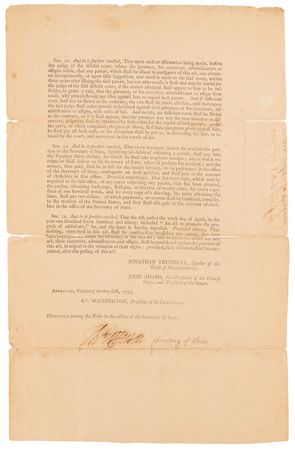 SEC. 10. And be it further enacted, That upon oath or affirmation being made, before
the judge of the district court, where the patentee, his executors, administrators or
assigns reside, that any patent, which shall be issued in pursuance of this act, was obtain-
ed surreptitiously, or upon false suggestion, and motion made to the said court, within
three years after issuing the said patent, but not afterwards, it shall and may be lawful for
the judge of the said district court, if the matter alledged shall appear to him to be suf-
ficient, to grant a rule, that the patentee, or his executor, administrator or assign show
cause, why process should not issue against him to repeal such patent. And if sufficient
cause shall not be shown to the contrary, the rule shall be made absolute, and thereupon
the said judge shall order process to be issued against such patentee, or his executors, ad-
ministrators or assigns, with costs of suit. And in case, no sufficient cause shall be shown
to the contrary, or if it shall appear, that the patentee was not the true inventor or dis-
coverer, judgment shall be rendered by such court for the repeal of such patent; and if
the party, at whose complaint, the process issued, shall have judgment given against him,
he shall pay all such costs, as the defendant shall be put to, in defending the suit, to be
taxed by the court, and recovered in due course of law.
SEC. 11. And be it further enacted, That every inventor, before he presents his peti-
tion to the Secretary of State, signifying his desire of obtaining a patent, shall pay into
the Treasury thirty dollars, for which he shall take duplicate receipts; one of which re-
ceipts he shall deliver to the Secretary of State, when he presents his petition; and the
money, thus paid, shall be in full for the sundry services, to be performed in the office
of the Secretary of State, consequent on such petition, and shall pass to the account
of clerk-hire in that office. Provided nevertheless, That for every copy, which may be
required at the said office, of any paper respecting any patent, that has been granted,
the person, obtaining such copy, shall pay, at the rate of twenty cents, for every copy-
sheet of one hundred words, and for every copy of a drawing, the party obtaining the
same, shall pay two dollars, of which payments, an account shall be rendered, annually,
to the treasury of the United States, and they shall also pass to the account of clerk-
hire in the office of the Secretary of State.
SEC. 12. And be it further enacted, That the act, passed the tenth day of April, in the
year one thousand seven hundred and ninety, intituled "An act to promote the pro-
gress of useful arts," be, and the same is hereby repealed. Provided always, That
nothing, contained in this act, shall be construed to
act, their executors, administrators and assigns, shall be considered within the purview
of this act, in respect to the violation of their rights; provided, such violations shall be com-
mitted, after the passing of this act.
JONATHAN TRUMBULL, Speaker of the
House of Representatives.
JOHN ADAMS, Vice-President of the United
States, and President of the Senate.
APPROVED, February twenty first, 1793.
Go. WASHINGTON, President of the United States.
DEPOSITED among the Rolls in the office of the Secretary of State.
Th: Jefferson Secretary of State.